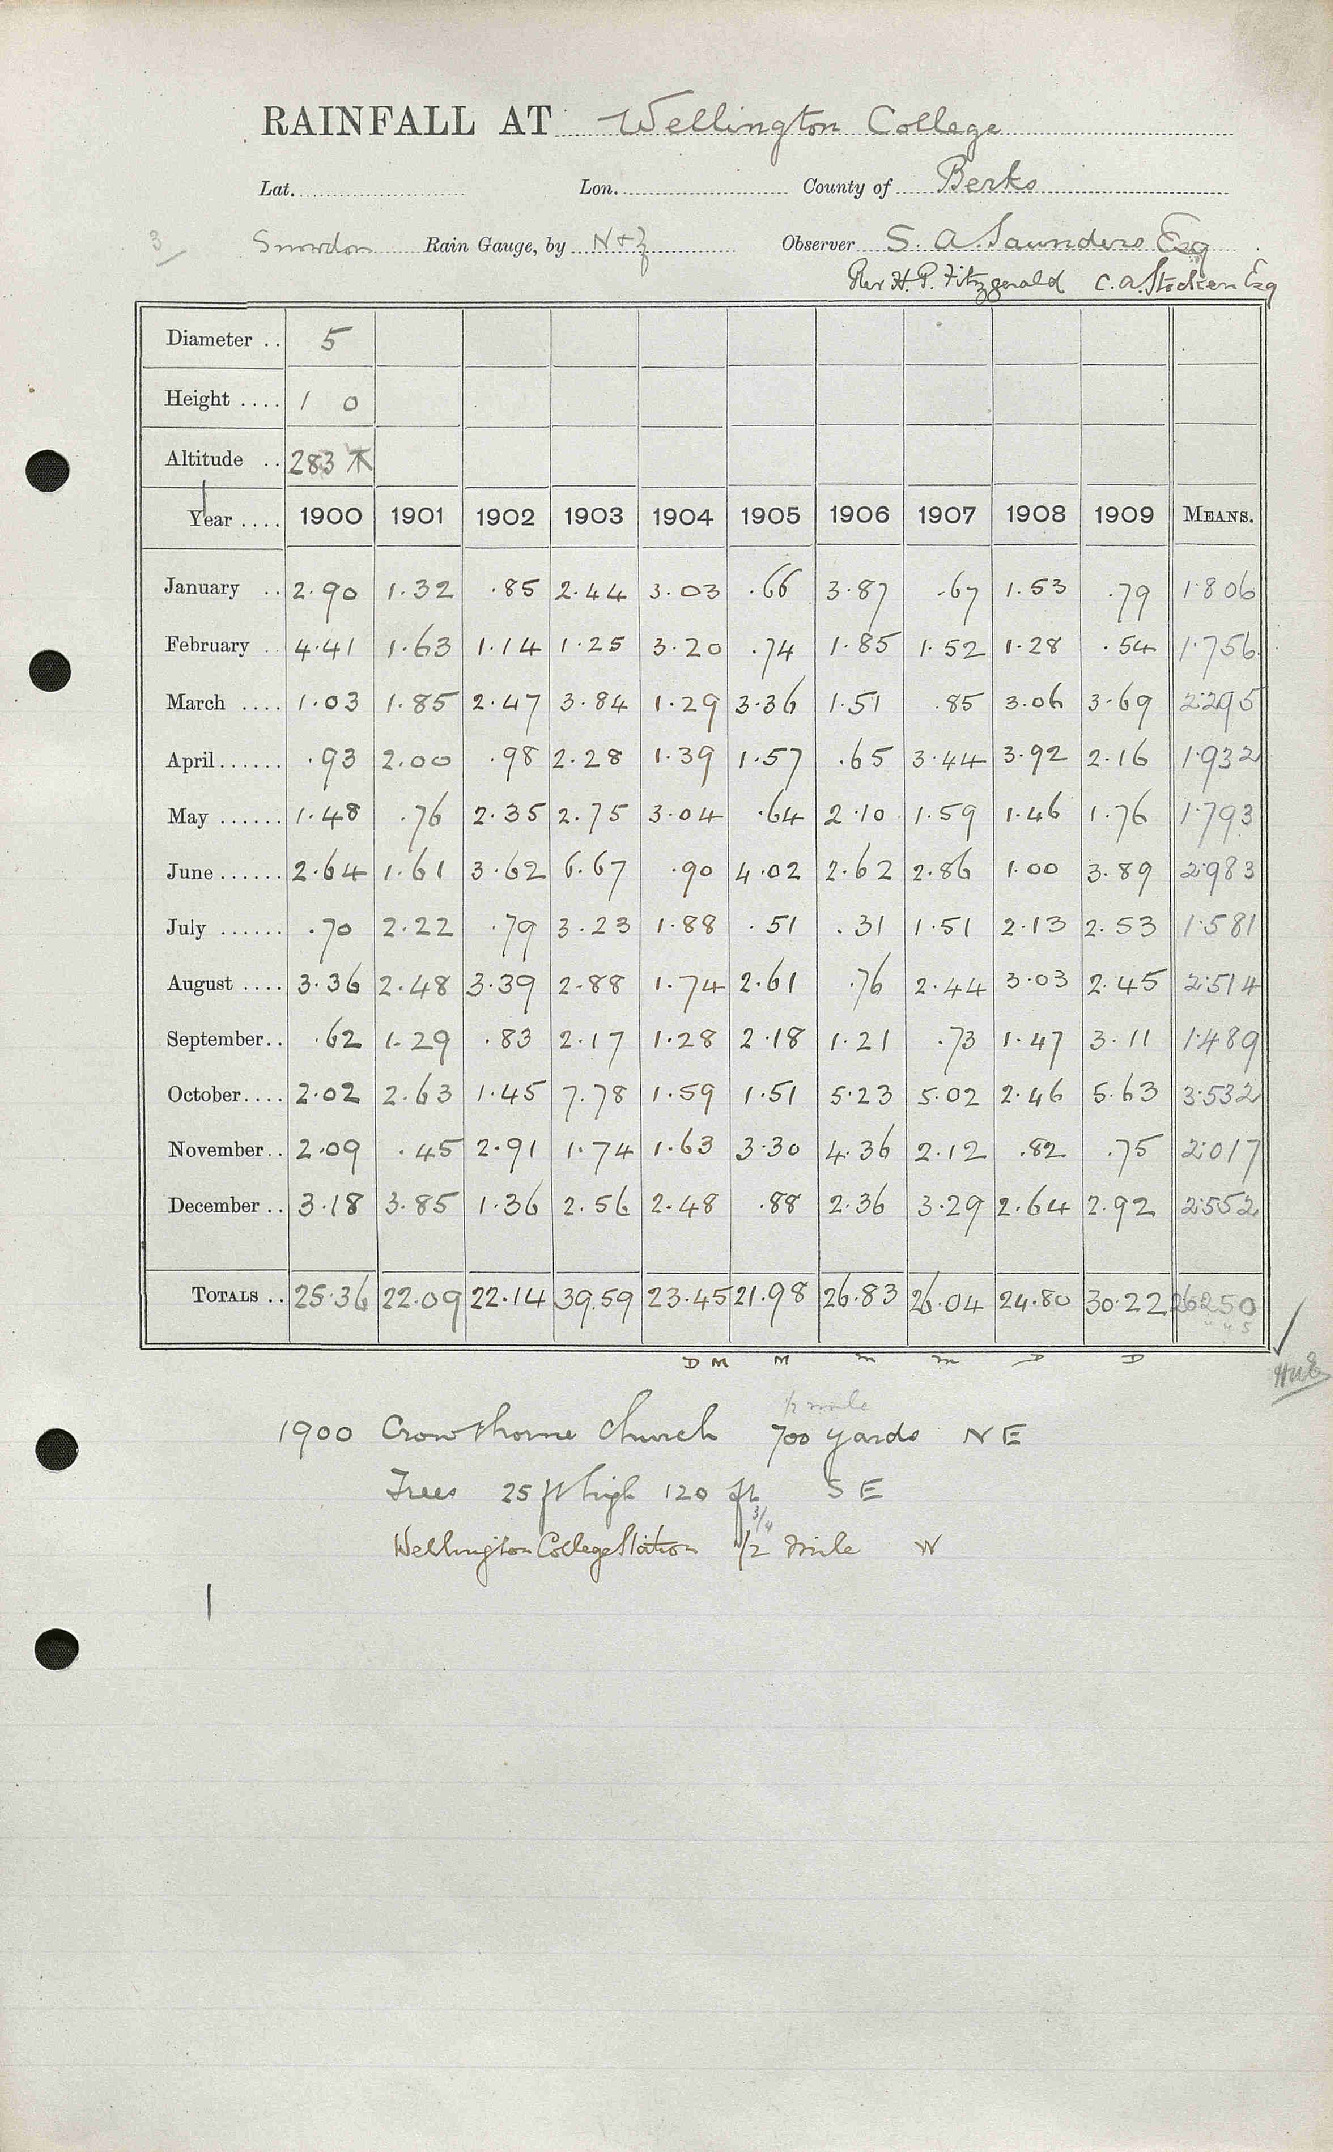 RAINFALL AT Wellington College
Lat. Lon. County of Berks
3 Snowdon Rain Gauge, by N+Z Observer S. A. Saunders Esq
Rev H. P. Fitzgerald C. A. Stocken Esq
Diameter .. 5
Height .... 1 0
Altitude .. 283
Year .... 1900 1901 1902 1903 1904 1905 1906 1907 1908 1909 MEANS.
January .. 2.90 1.32 .85 2.44 3.03 .66 3.87 .67 1.53 .79 1.806
February .. 4.41 1.63 1.14 1.25 3.20 .74 1.85 1.52 1.28 .54 1.756
March .... 1.03 1.85 2.47 3.84 1.29 3.36 1.51 .85 3.06 3.69 2.295
April ...... .93 2.00 .98 2.28 1.39 1.57 .65 3.44 3.92 2.16 1.932
May ...... 1.48 .76 2.35 2.75 3.04 .64 2.10 1.59 1.46 1.76 1.793
June ...... 2.64 1.61 3.62 6.67 .90 4.02 2.62 2.86 1.00 3.89 2.983
July ...... .70 2.22 .79 3.23 1.88 .51 .31 1.51 2.13 2.53 1.581
August .... 3.36 2.48 3.39 2.88 1.74 2.61 .76 2.44 3.03 2.45 2.514
September.. .62 1.29 .83 2.17 1.28 2.18 1.21 .73 1.47 3.11 1.489
October.... 2.02 2.63 1.45 7.78 1.59 1.51 5.23 5.02 2.46 5.63 3.532
November.. 2.09 .45 2.91 1.74 1.63 3.30 4.36 2.12 .82 .75 2.017
December .. 3.18 3.85 1.36 2.56 2.48 .88 2.36 3.29 2.64 2.92 2.552
TOTALS .. 25.36 22.09 22.14 39.59 23.45 21.98 26.83 26.04 24.80 30.22 26.250
D M M m m D D
1/2 mile
1900 Crowthorne Church 700 yards NE
Trees 25 ft high 120 ft SE
3/4
Wellington College Station 1/2 mile W